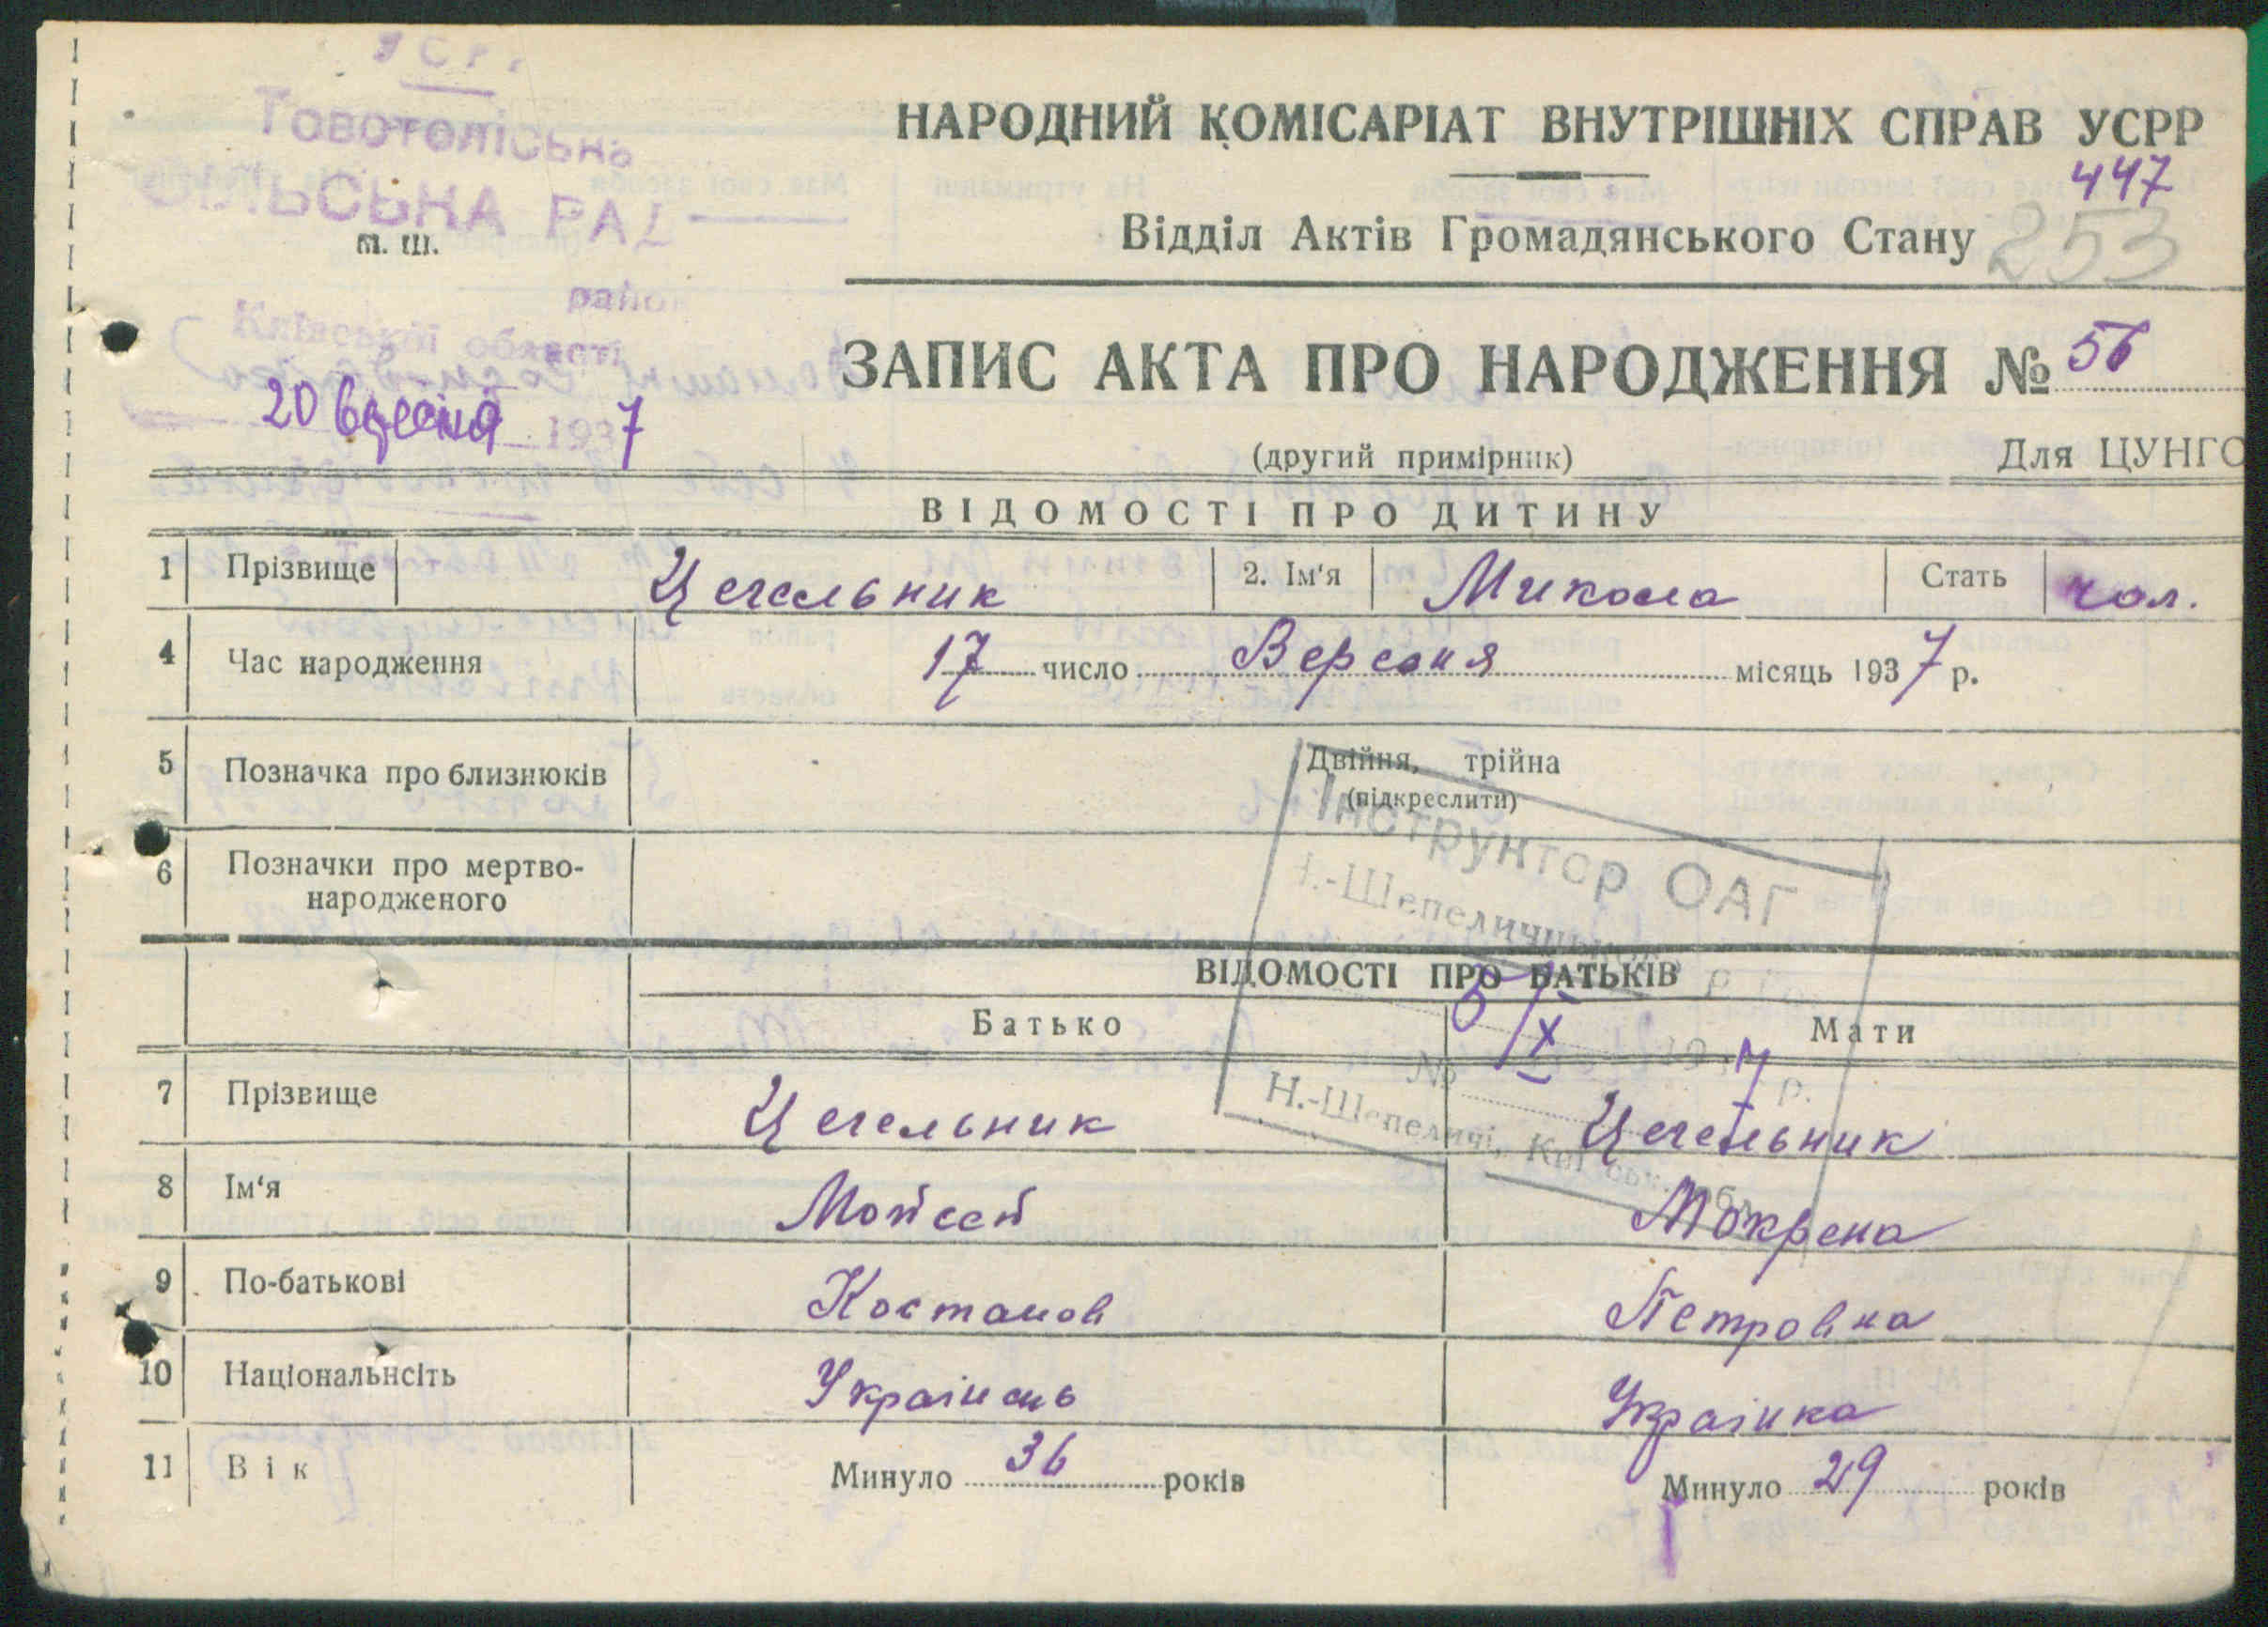 УСРР
Товстоліськ
СІЛЬСЬКА РАД
м. ш.
район
Київської області
20 вересня 1937
НАРОДНИЙ КОМІСАРІАТ ВНУТРІШНІХ СПРАВ УСРР
447
Відділ Актів Громадянського Стану
253
ЗАПИС АКТА ПРО НАРОДЖЕННЯ № 56
(другий примірник) Для ЦУНГО
ВІДОМОСТІ ПРО ДИТИНУ
1 Прізвище Цегельник 2. Ім'я Микола Стать чол.
4 Час народження 17 число Вересня місяць 1937 р.
5 Позначка про близнюків Двійня, трійна
(підкреслити)
6 Позначки про мертво-
народженого
Інструктор ОАГ
Н.-Шепелицького р
5/X 1937 р.
№
Н.-Шепеличі, Київськ. обл.
ВІДОМОСТІ ПРО БАТЬКІВ
Батько Мати
7 Прізвище Цегельник Цегельник
8 Ім'я Мойсей Мокрена
9 По-батькові Костанов Петровна
10 Національнсіть Українець Українка
11 Вік Минуло 36 років Минуло 29 років